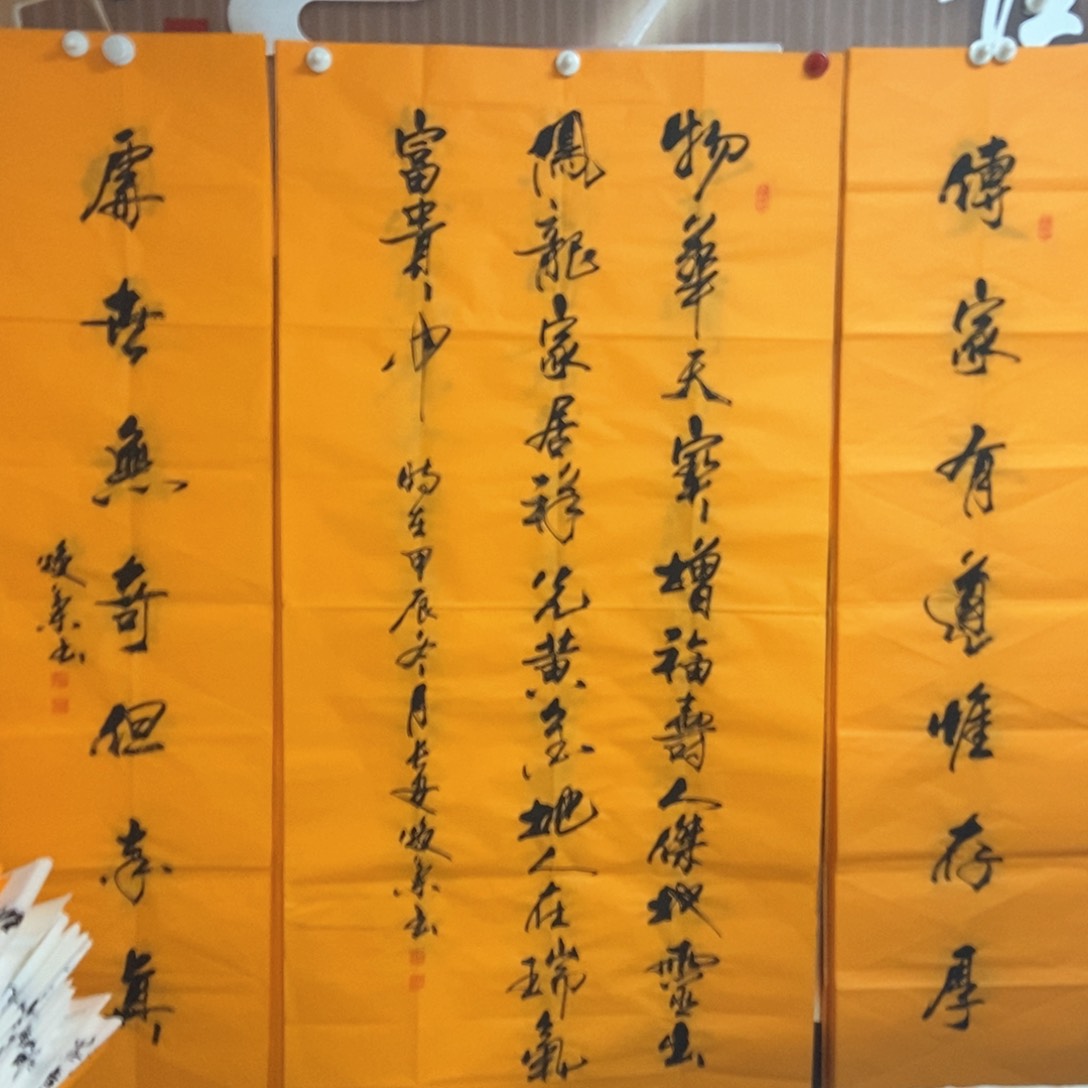 傳家有道惟存厚
物華天寶增福壽人傑地靈出
鳳龍家居祥光黄金地人在瑞氣
富貴中
時在甲辰冬月长安书
處世無奇但率真
书